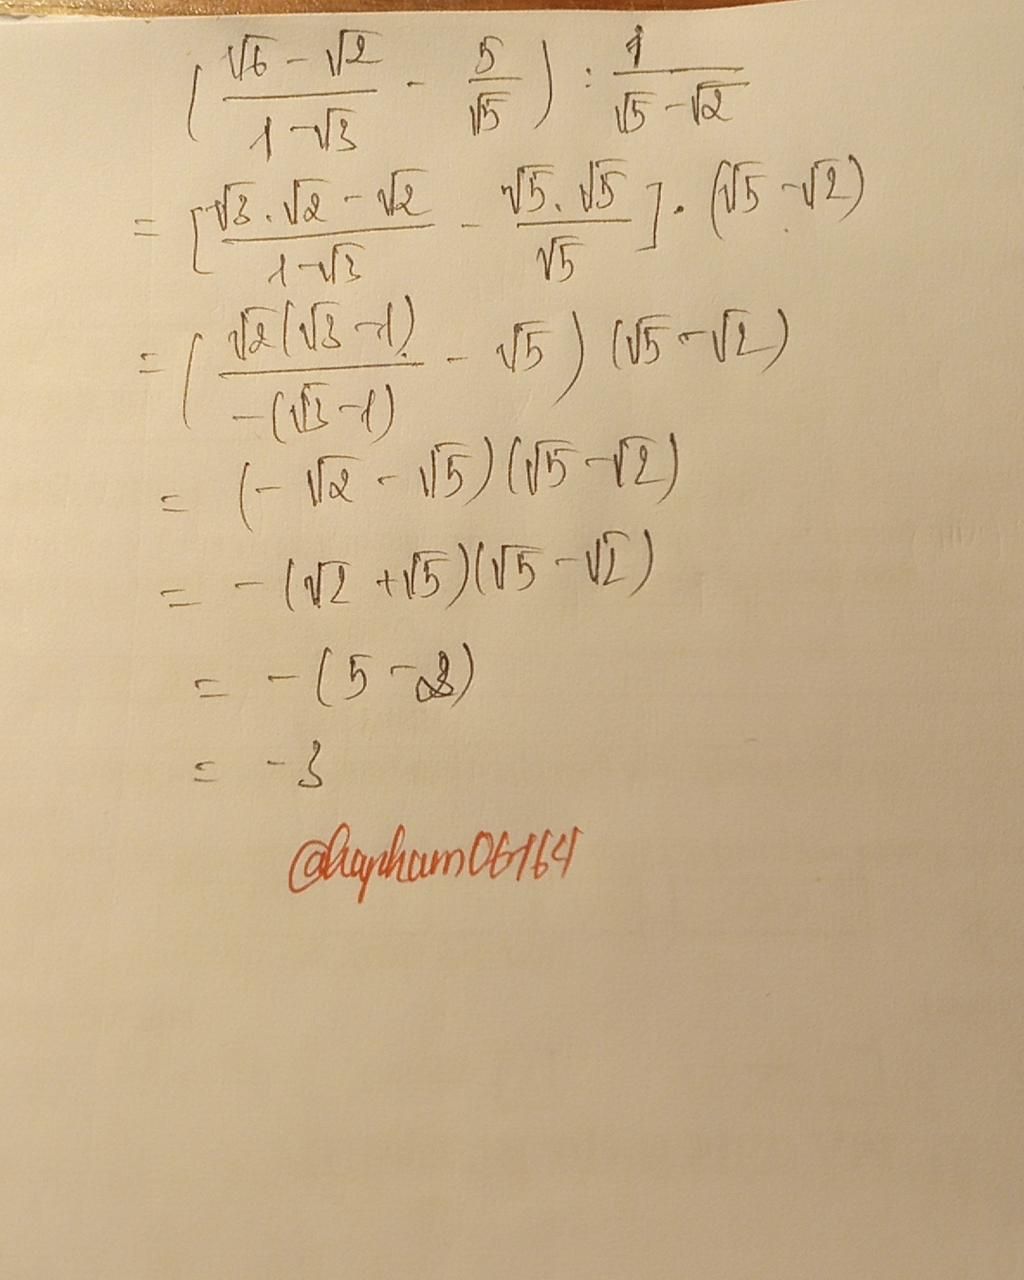 (√6 - √2 / 1-√3 - 5/√5) : 1/√5-√2
= [√3.√2 - √2 / 1-√3 - √5.√5 / √5] . (√5 - √2)
= (√2(√3-1) / -(√3-1) - √5) (√5-√2)
= (-√2 - √5)(√5-√2)
= -(√2 +√5)(√5-√2)
= -(5-2)
= -3
@hapham06164